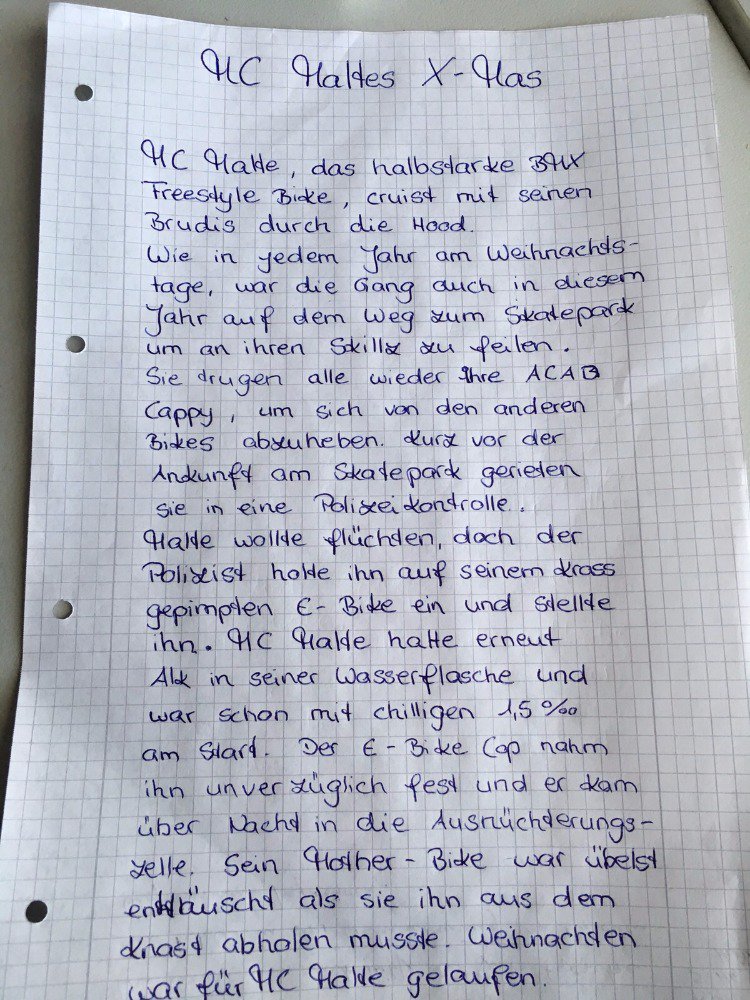 MC Maltes X-Mas
MC Malte, das halbstarke BMX
Freestyle Bike, cruist mit seinen
Brudis durch die Hood.
Wie in jedem Jahr am Weihnachts-
tage, war die Gang auch in diesem
Jahr auf dem Weg zum Skatepark
um an ihren Skillz zu feilen.
Sie trugen alle wieder ihre ACAB
Cappy, um sich von den anderen
Bikes abzuheben. Kurz vor der
Ankunft am Skatepark gerieten
sie in eine Polizeikontrolle.
Malte wollte flüchten, doch der
Polizist holte ihn auf seinem krass
gepimpten E-Bike ein und stellte
ihn. MC Malte hatte erneut
Alk in seiner Wasserflasche und
war schon mit chilligen 1,5 ‰
am Start. Der E-Bike Cop nahm
ihn unverzüglich fest und er kam
über Nacht in die Ausnüchterungs-
zelle. Sein Mother-Bike war übelst
enttäuscht als sie ihn aus dem
Knast abholen musste. Weihnachten
war für MC Malte gelaufen.